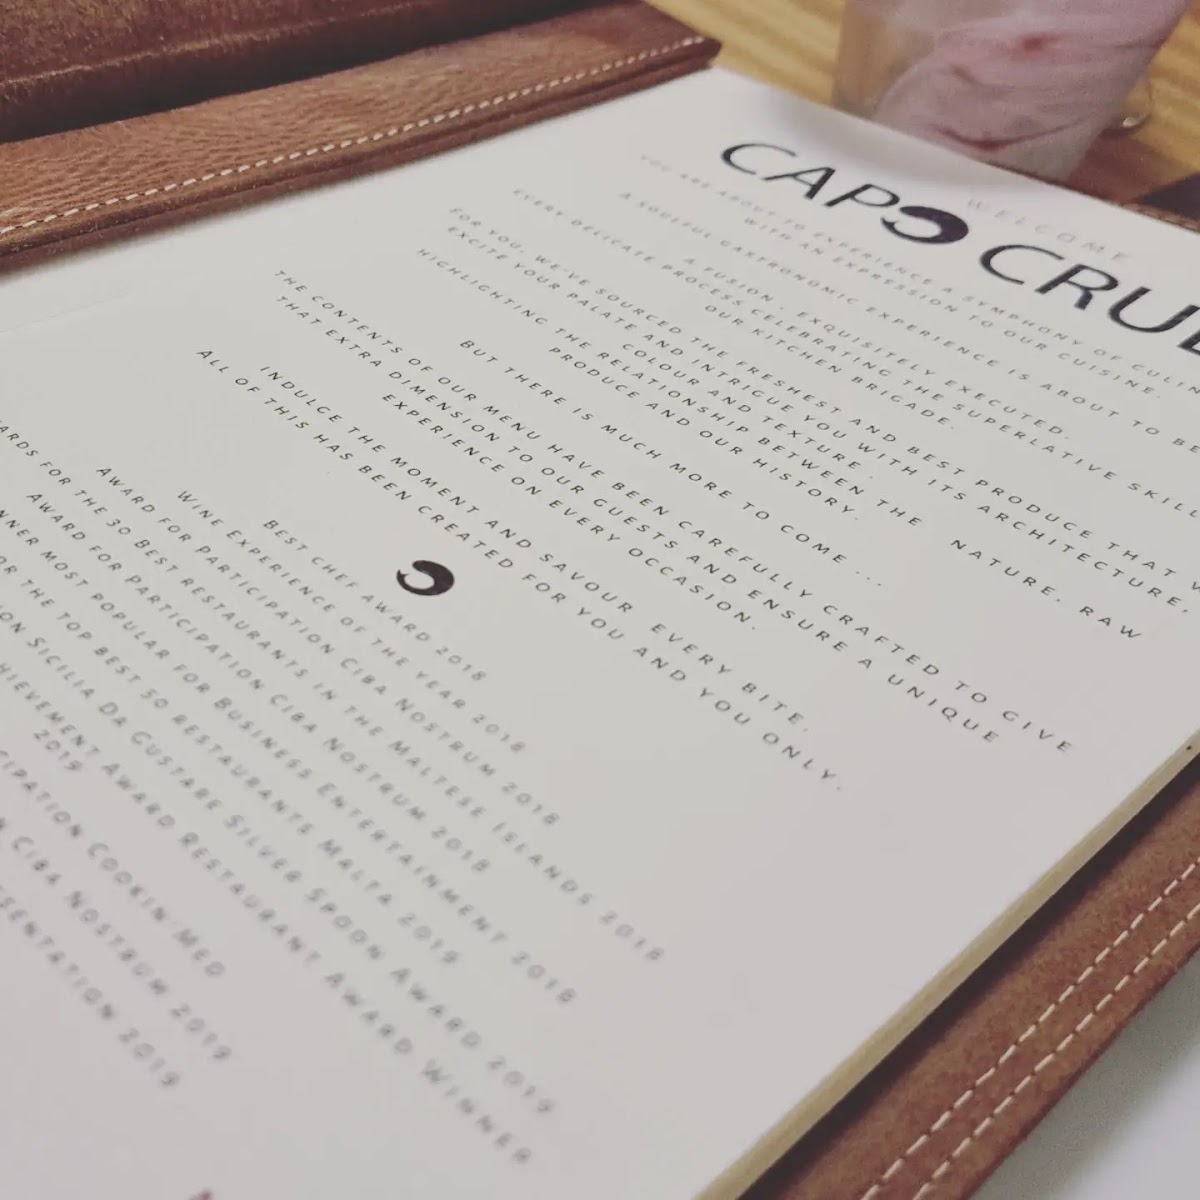 WELCOME
CAPO CRU
YOU ARE ABOUT TO EXPERIENCE A SYMPHONY OF
WITH AN EXPRESSION TO OUR CUISINE.
A SOULFUL GASTRONOMIC EXPERIENCE IS ABOUT TO BE
A FUSION, EXQUISITELY EXECUTED.
EVERY DELICATE PROCESS CELEBRATING THE SUPERLATIVE
OUR KITCHEN BRIGADE.
FOR YOU, WE'VE SOURCED THE FRESHEST AND BEST PRODUCE THAT
EXCITE YOUR PALATE AND INTRIGUE YOU WITH ITS ARCHITECTURE,
COLOUR AND TEXTURE.
HIGHLIGHTING THE RELATIONSHIP BETWEEN THE NATURE, RAW
PRODUCE AND OUR HISTORY.
BUT THERE IS MUCH MORE TO COME ...
THE CONTENTS OF OUR MENU HAVE BEEN CAREFULLY CRAFTED TO GIVE
THAT EXTRA DIMENSION TO OUR GUESTS AND ENSURE A UNIQUE
EXPERIENCE ON EVERY OCCASION.
INDULGE THE MOMENT AND SAVOUR EVERY BITE.
ALL OF THIS HAS BEEN CREATED FOR YOU AND YOU ONLY.
BEST CHEF AWARD 2018
WINE EXPERIENCE OF THE YEAR 2018
AWARD FOR PARTICIPATION CIBA NOSTRUM 2018
FOR THE 30 BEST RESTAURANTS IN THE MALTESE ISLANDS 2018
AWARD FOR PARTICIPATION CIBA NOSTRUM 2018
MOST POPULAR FOR BUSINESS ENTERTAINMENT 2018
THE TOP BEST 50 RESTAURANTS MALTA 2019
SICILIA DA GUSTARE SILVER SPOON AWARD 2019
AWARD RESTAURANT AWARD WINNER
2019
COOKIN-MED
CIBA NOSTRUM 2019
2019